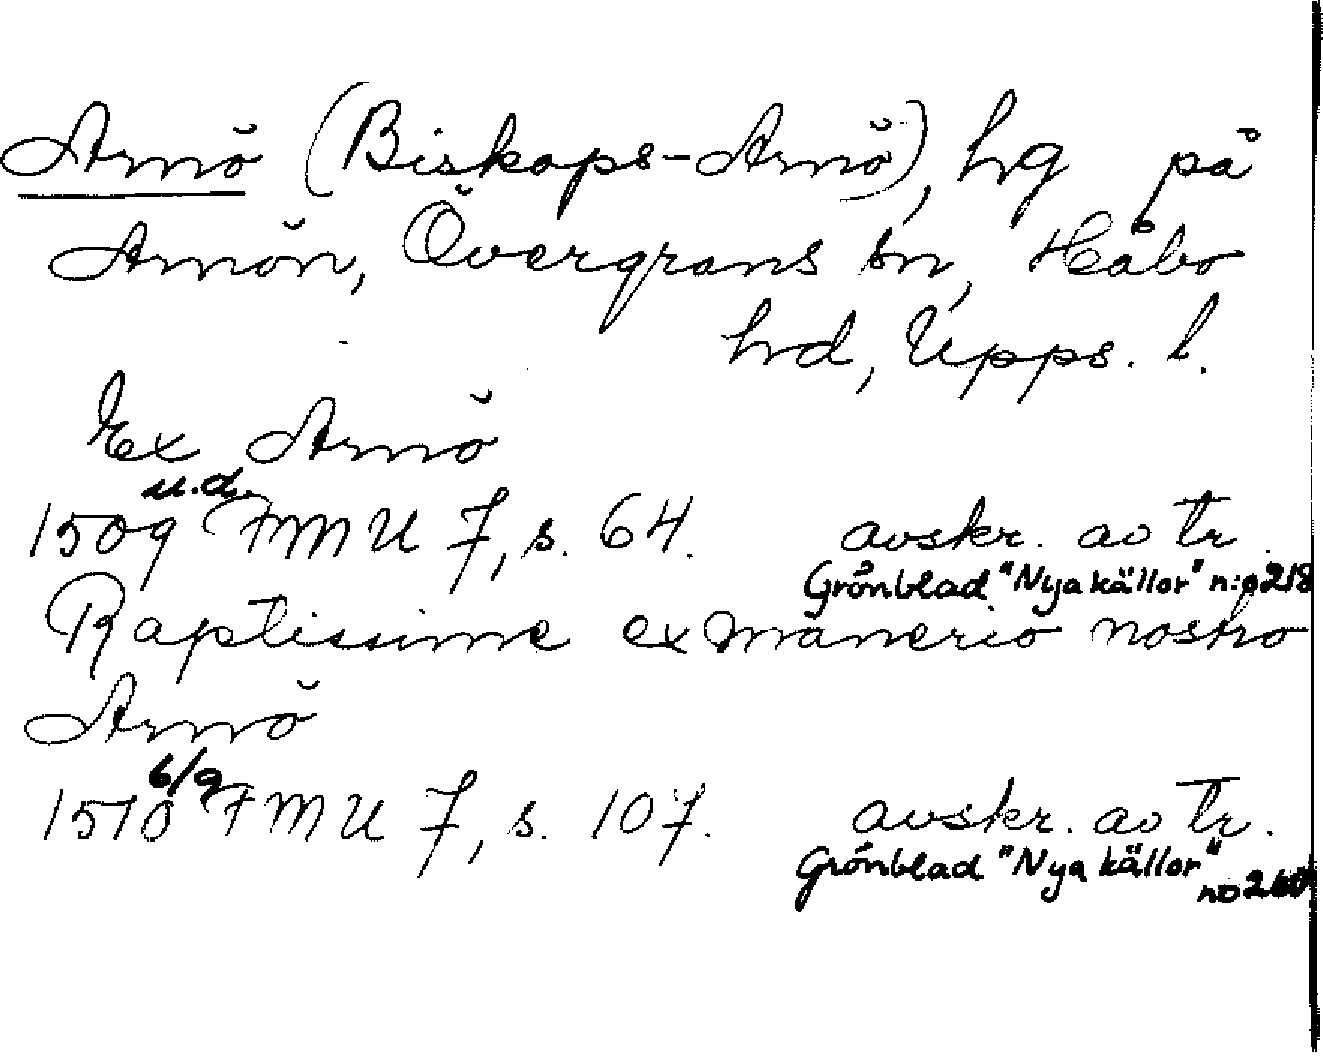 Arnö (Biskops-Arnö), hg på
Arnön, Övergrans sn, Håbo
hrd, Upps. l.
Ex Arnö
u.d.
1509 FMU 7, s. 64. avskr. av tr.
Grönblad "Nya källor" n:o 218
Raptissime ex manerio nostro
Arnö
6/9
1510 FMU 7, s. 107. avskr. av tr.
Grönblad "Nya källor"
no